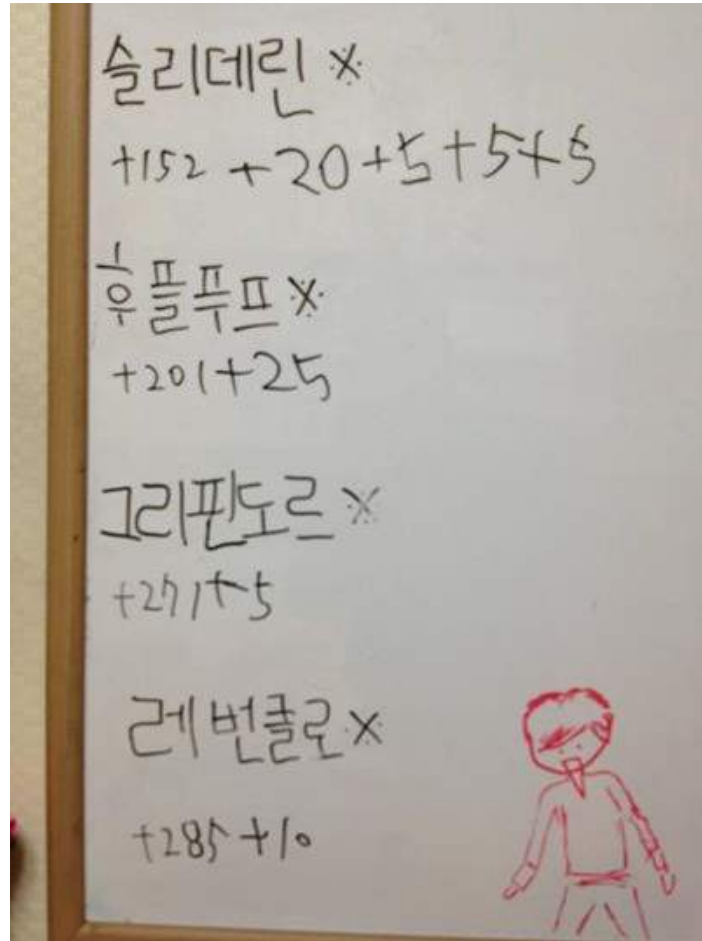 슬리데린 ※
+152 +20+5+5+5
후플푸프 ※
+201+25
그리핀도르 ※
+271+5
레번클로 ※
+285+10